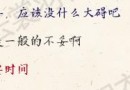 一．应该没什么大碍吧
一般的不妥啊
时间